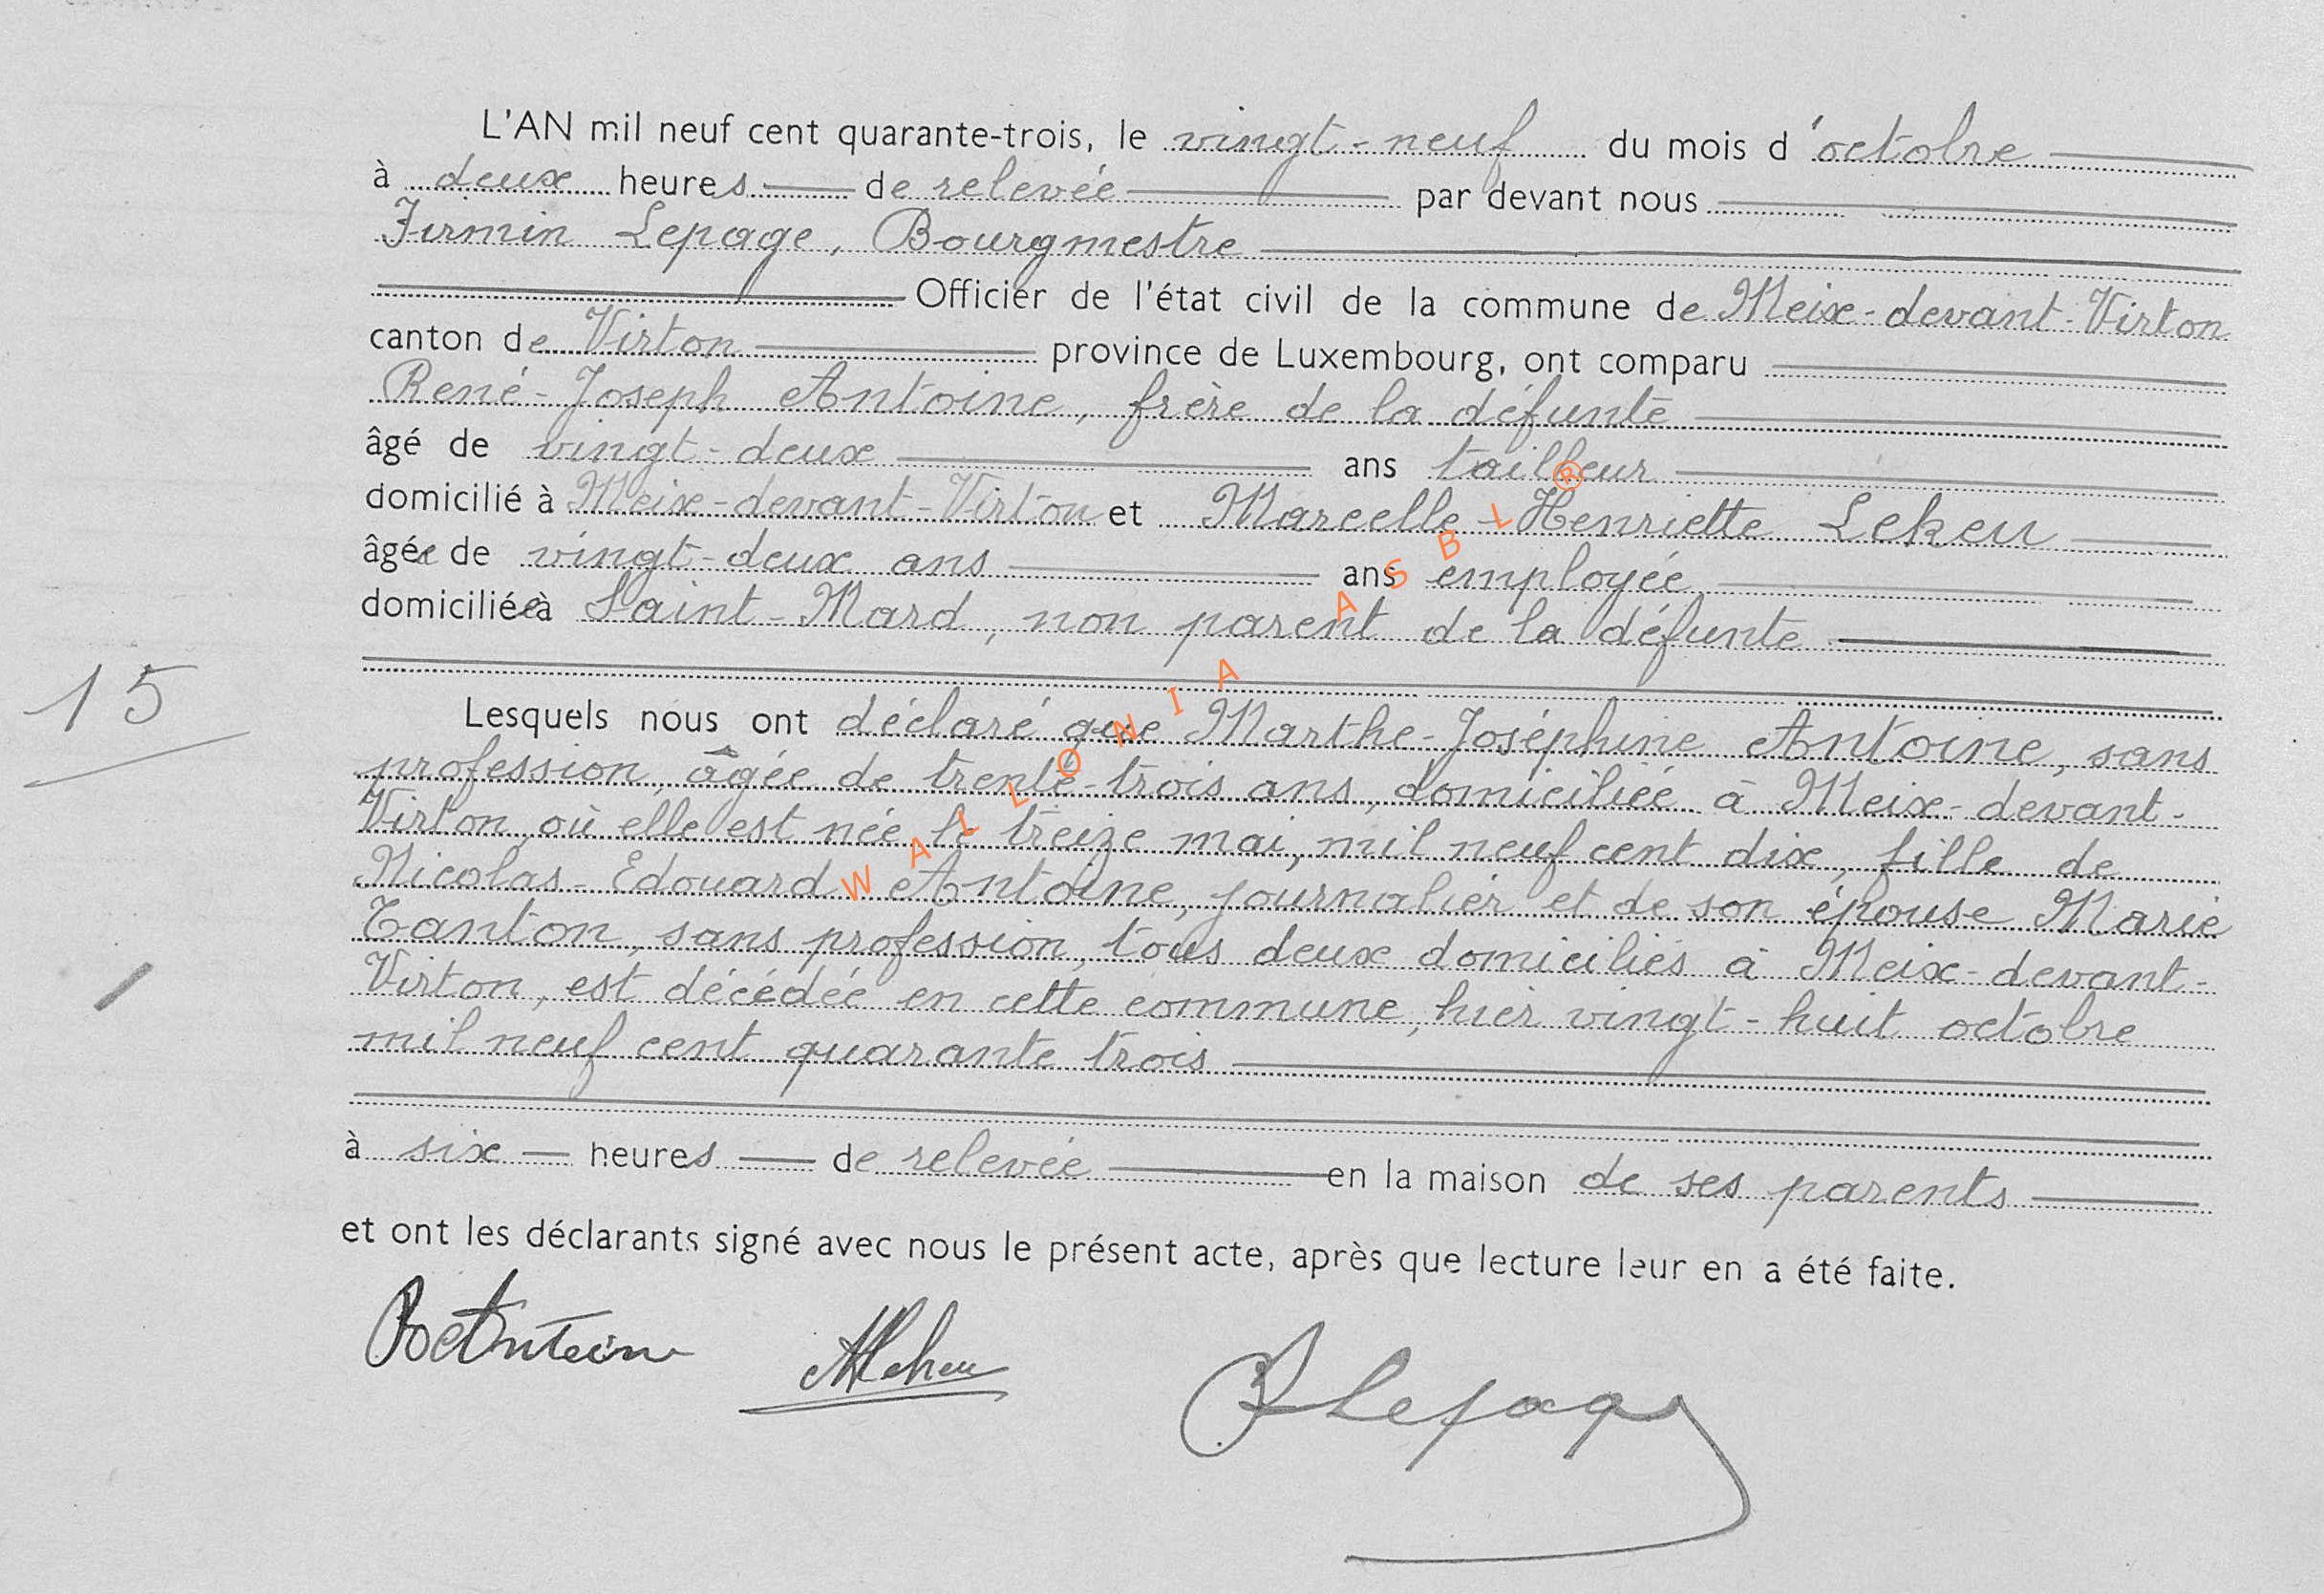 L'AN mil neuf cent quarante-trois, le vingt-neuf du mois d'octobre
à deux heures de relevée par devant nous
Firmin Lepage, Bourgmestre
Officier de l'état civil de la commune de Meix-devant-Virton
canton de Virton province de Luxembourg, ont comparu
René-Joseph Antoine, frère de la défunte
âgé de vingt-deux ans tailleur
domicilié à Meix-devant-Virton et Marcelle-Henriette Lekeu
âgée de vingt-deux ans ans employée
domiciliée à Saint-Mard, non parent de la défunte
15
Lesquels nous ont déclaré que Marthe-Joséphine Antoine, sans
profession, âgée de trente-trois ans, domiciliée à Meix-devant-
Virton, où elle est née le treize mai, mil neuf cent dix, fille de
Nicolas-Edouard Antoine, journalier et de son épouse Marie
Tanton, sans profession, tous deux domiciliés à Meix-devant-
Virton, est décédée en cette commune, hier vingt-huit octobre
mil neuf cent quarante trois
à six heures de relevée en la maison de ses parents
et ont les déclarants signé avec nous le présent acte, après que lecture leur en a été faite.
RAntoine MLekeu FLepage
WALLONIA ASBL ®